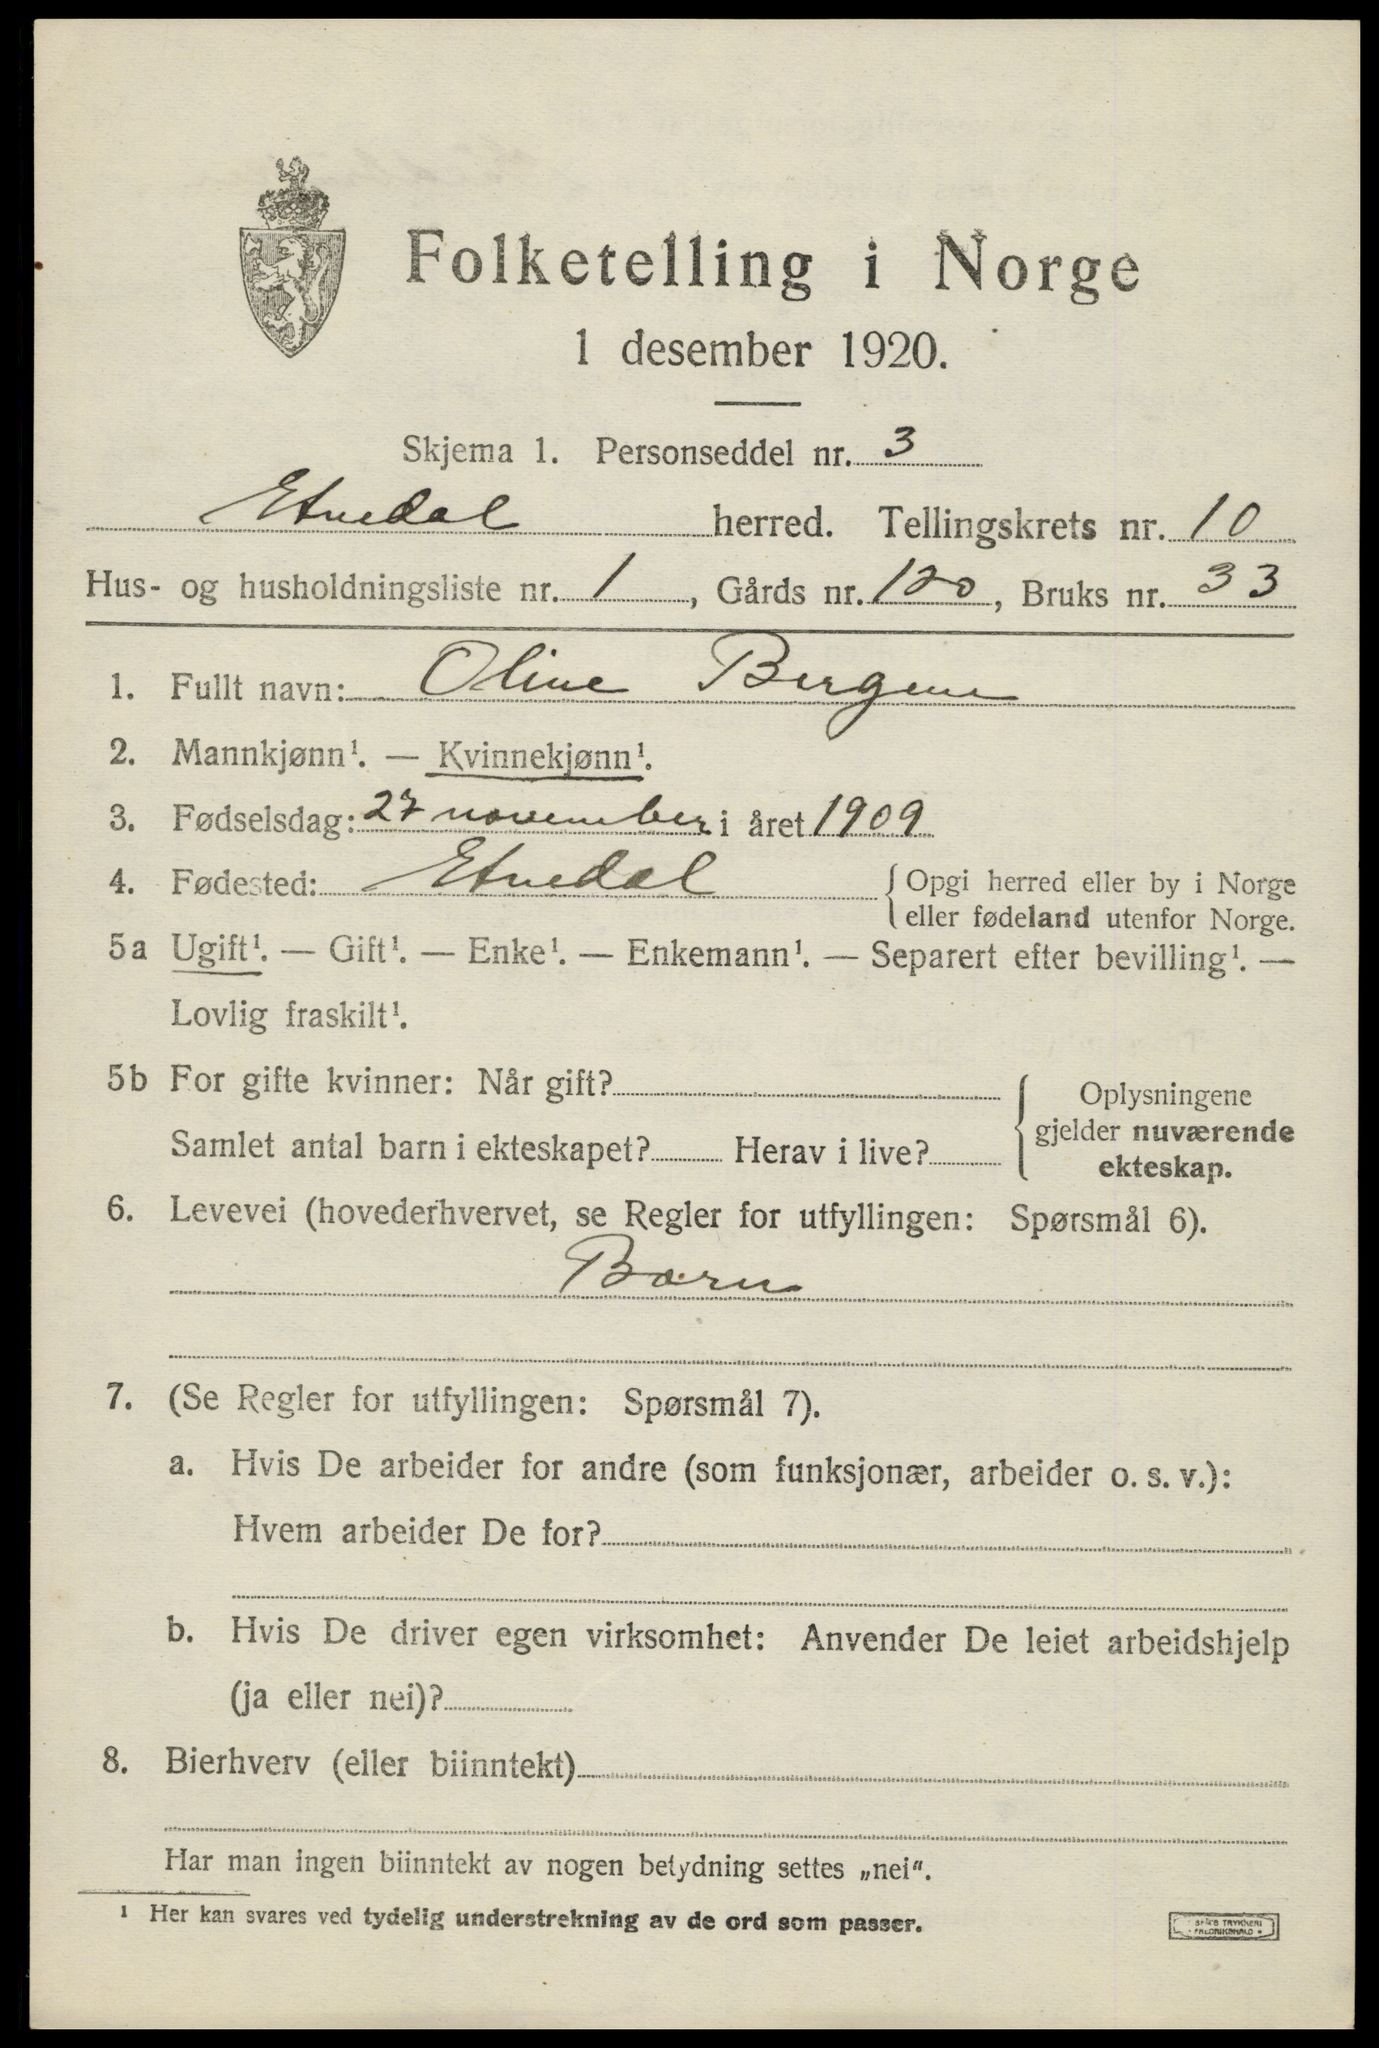 Folketelling i Norge
1 desember 1920.
Skjema 1. Personseddel nr. 3
Etnedal herred. Tellingskrets nr. 10
Hus- og husholdningsliste nr. 1, Gårds nr. 120, Bruks nr. 33
1. Fullt navn: Oline Bergene
2. Mannkjønn¹. — Kvinnekjønn¹.
3. Fødselsdag: 27 november i året 1909
4. Fødested: Etnedal {Opgi herred eller by i Norge
eller fødeland utenfor Norge.
5a Ugift¹. — Gift¹. — Enke¹. — Enkemann¹. — Separert efter bevilling¹. —
Lovlig fraskilt¹.
5b For gifte kvinner: Når gift?
Samlet antal barn i ekteskapet? Herav i live?
{Oplysningene
gjelder nuværende
ekteskap.
6. Levevei (hovederhvervet, se Regler for utfyllingen: Spørsmål 6).
Barn
7. (Se Regler for utfyllingen: Spørsmål 7).
a. Hvis De arbeider for andre (som funksjonær, arbeider o. s. v.):
Hvem arbeider De for?
b. Hvis De driver egen virksomhet: Anvender De leiet arbeidshjelp
(ja eller nei)?
8. Bierhverv (eller biinntekt)
Har man ingen biinntekt av nogen betydning settes „nei“.
¹ Her kan svares ved tydelig understrekning av de ord som passer.
TRYKKERI
FREDRIKSHALD